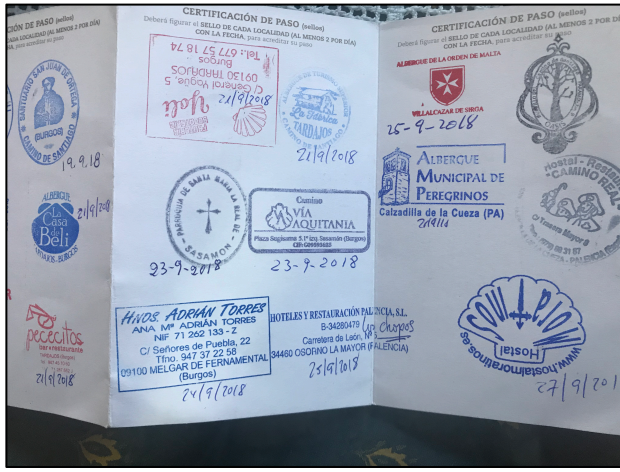 CERTIFICACIÓN DE PASO (sellos)
SELLO DE CADA LOCALIDAD (AL MENOS 2 POR DÍA)
para acreditar su paso
SANTUARIO SAN JUAN DE ORTEGA
(BURGOS)
CAMINO DE SANTIAGO
19.9.18
ALBERGUE
La
Casa
de
Beli
TARDAJOS-BURGOS
21/9/2018
pececitos
bar restaurante
21/9/2018
CERTIFICACIÓN DE PASO (sellos)
Deberá figurar el SELLO DE CADA LOCALIDAD (AL MENOS 2 POR DÍA)
CON LA FECHA, para acreditar su paso
Yoli
C/ General Yagüe, 5
09130 TARDAJOS
Burgos
Tel.: 677 57 18 74
21/9/2018
La Fábrica
TARDAJOS
21/9/2018
PARROQUIA DE SANTA MARIA LA REAL DE
SASAMON
23-9-2018
Camino
VÍA
AQUITANIA
Plaza Sagisama 5.1º izq. Sasamón (Burgos)
23-9-2018
HNOS. ADRIÁN TORRES
ANA Mª ADRIÁN TORRES
NIF 71 262 133 - Z
C/ Señores de Puebla, 22
Tfno. 947 37 22 58
09100 MELGAR DE FERNAMENTAL
(Burgos)
24/9/2018
HOTELES Y RESTAURACIÓN S.L.
B-34280479
Los Chopos
Carretera de León, Nº
34460 OSORNO LA MAYOR (PALENCIA)
25/9/2018
CERTIFICACIÓN DE PASO (sellos)
Deberá figurar el SELLO DE CADA LOCALIDAD (AL MENOS 2 POR DÍA)
CON LA FECHA, para acreditar su paso
ALBERGUE DE LA ORDEN DE MALTA
VILLALCAZAR DE SIRGA
25-9-2018
ALBERGUE
MUNICIPAL DE
PEREGRINOS
Calzadilla de la Cueza (PA)
Hostal - Restau
"CAMINO REAL"
Moratinos
Hostal
www.hostalmoratinos.es
27/9/201